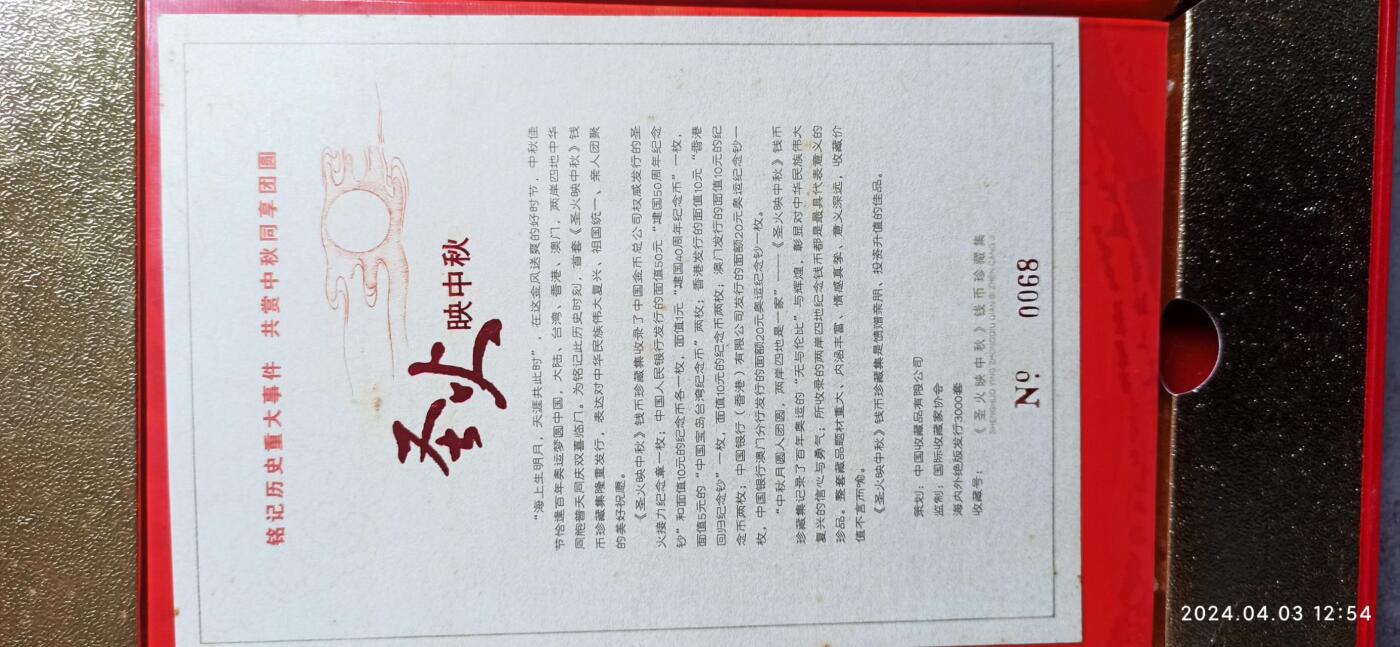 铭记历史重大事件 共赏中秋同享团圆
圣火
映中秋
“海上生明月，天涯共此时”，在这金风送爽的好时节，中秋佳
节恰逢百年奥运梦圆中国，大陆、台湾、香港、澳门，两岸四地中华
同胞普天同庆双喜临门。为铭记此历史时刻，首套《圣火映中秋》钱
币珍藏集隆重发行，表达对中华民族伟大复兴、祖国统一、亲人团聚
的美好祝愿。
《圣火映中秋》钱币珍藏集收录了中国金币总公司权威发行的圣
火接力纪念章一枚；中国人民银行发行的面值50元“建国50周年纪念
钞”和面值10元的纪念币各一枚，面值1元“建国40周年纪念币”一枚，
面值5元的“中国宝岛台湾纪念币”两枚；香港发行的面值10元“香港
回归纪念钞”一枚，面值10元的纪念币两枚；澳门发行的面值10元的纪
念币两枚；中国银行（香港）有限公司发行的面额20元奥运纪念钞一
枚，中国银行澳门分行发行的面额20元奥运纪念钞一枚。
“中秋月圆人团圆，两岸四地是一家”——《圣火映中秋》钱币
珍藏集记录了百年奥运的“无与伦比”与辉煌，彰显对中华民族伟大
复兴的信心与勇气；所收录的两岸四地纪念钱币都是最具代表意义的
珍品。整套藏品题材重大、内涵丰富、情感真挚、意义深远，收藏价
值不言而喻。
《圣火映中秋》钱币珍藏集是馈赠亲朋、投资升值的佳品。
策划：中国收藏品有限公司
监制：国际收藏家协会
海内外绝版发行3000套
收藏号：《圣火映中秋》钱币珍藏集
SHENG HUO YING ZHONGQIU QIAN BI ZHEN CANG JI
No 0068
2024.04.03 12:54